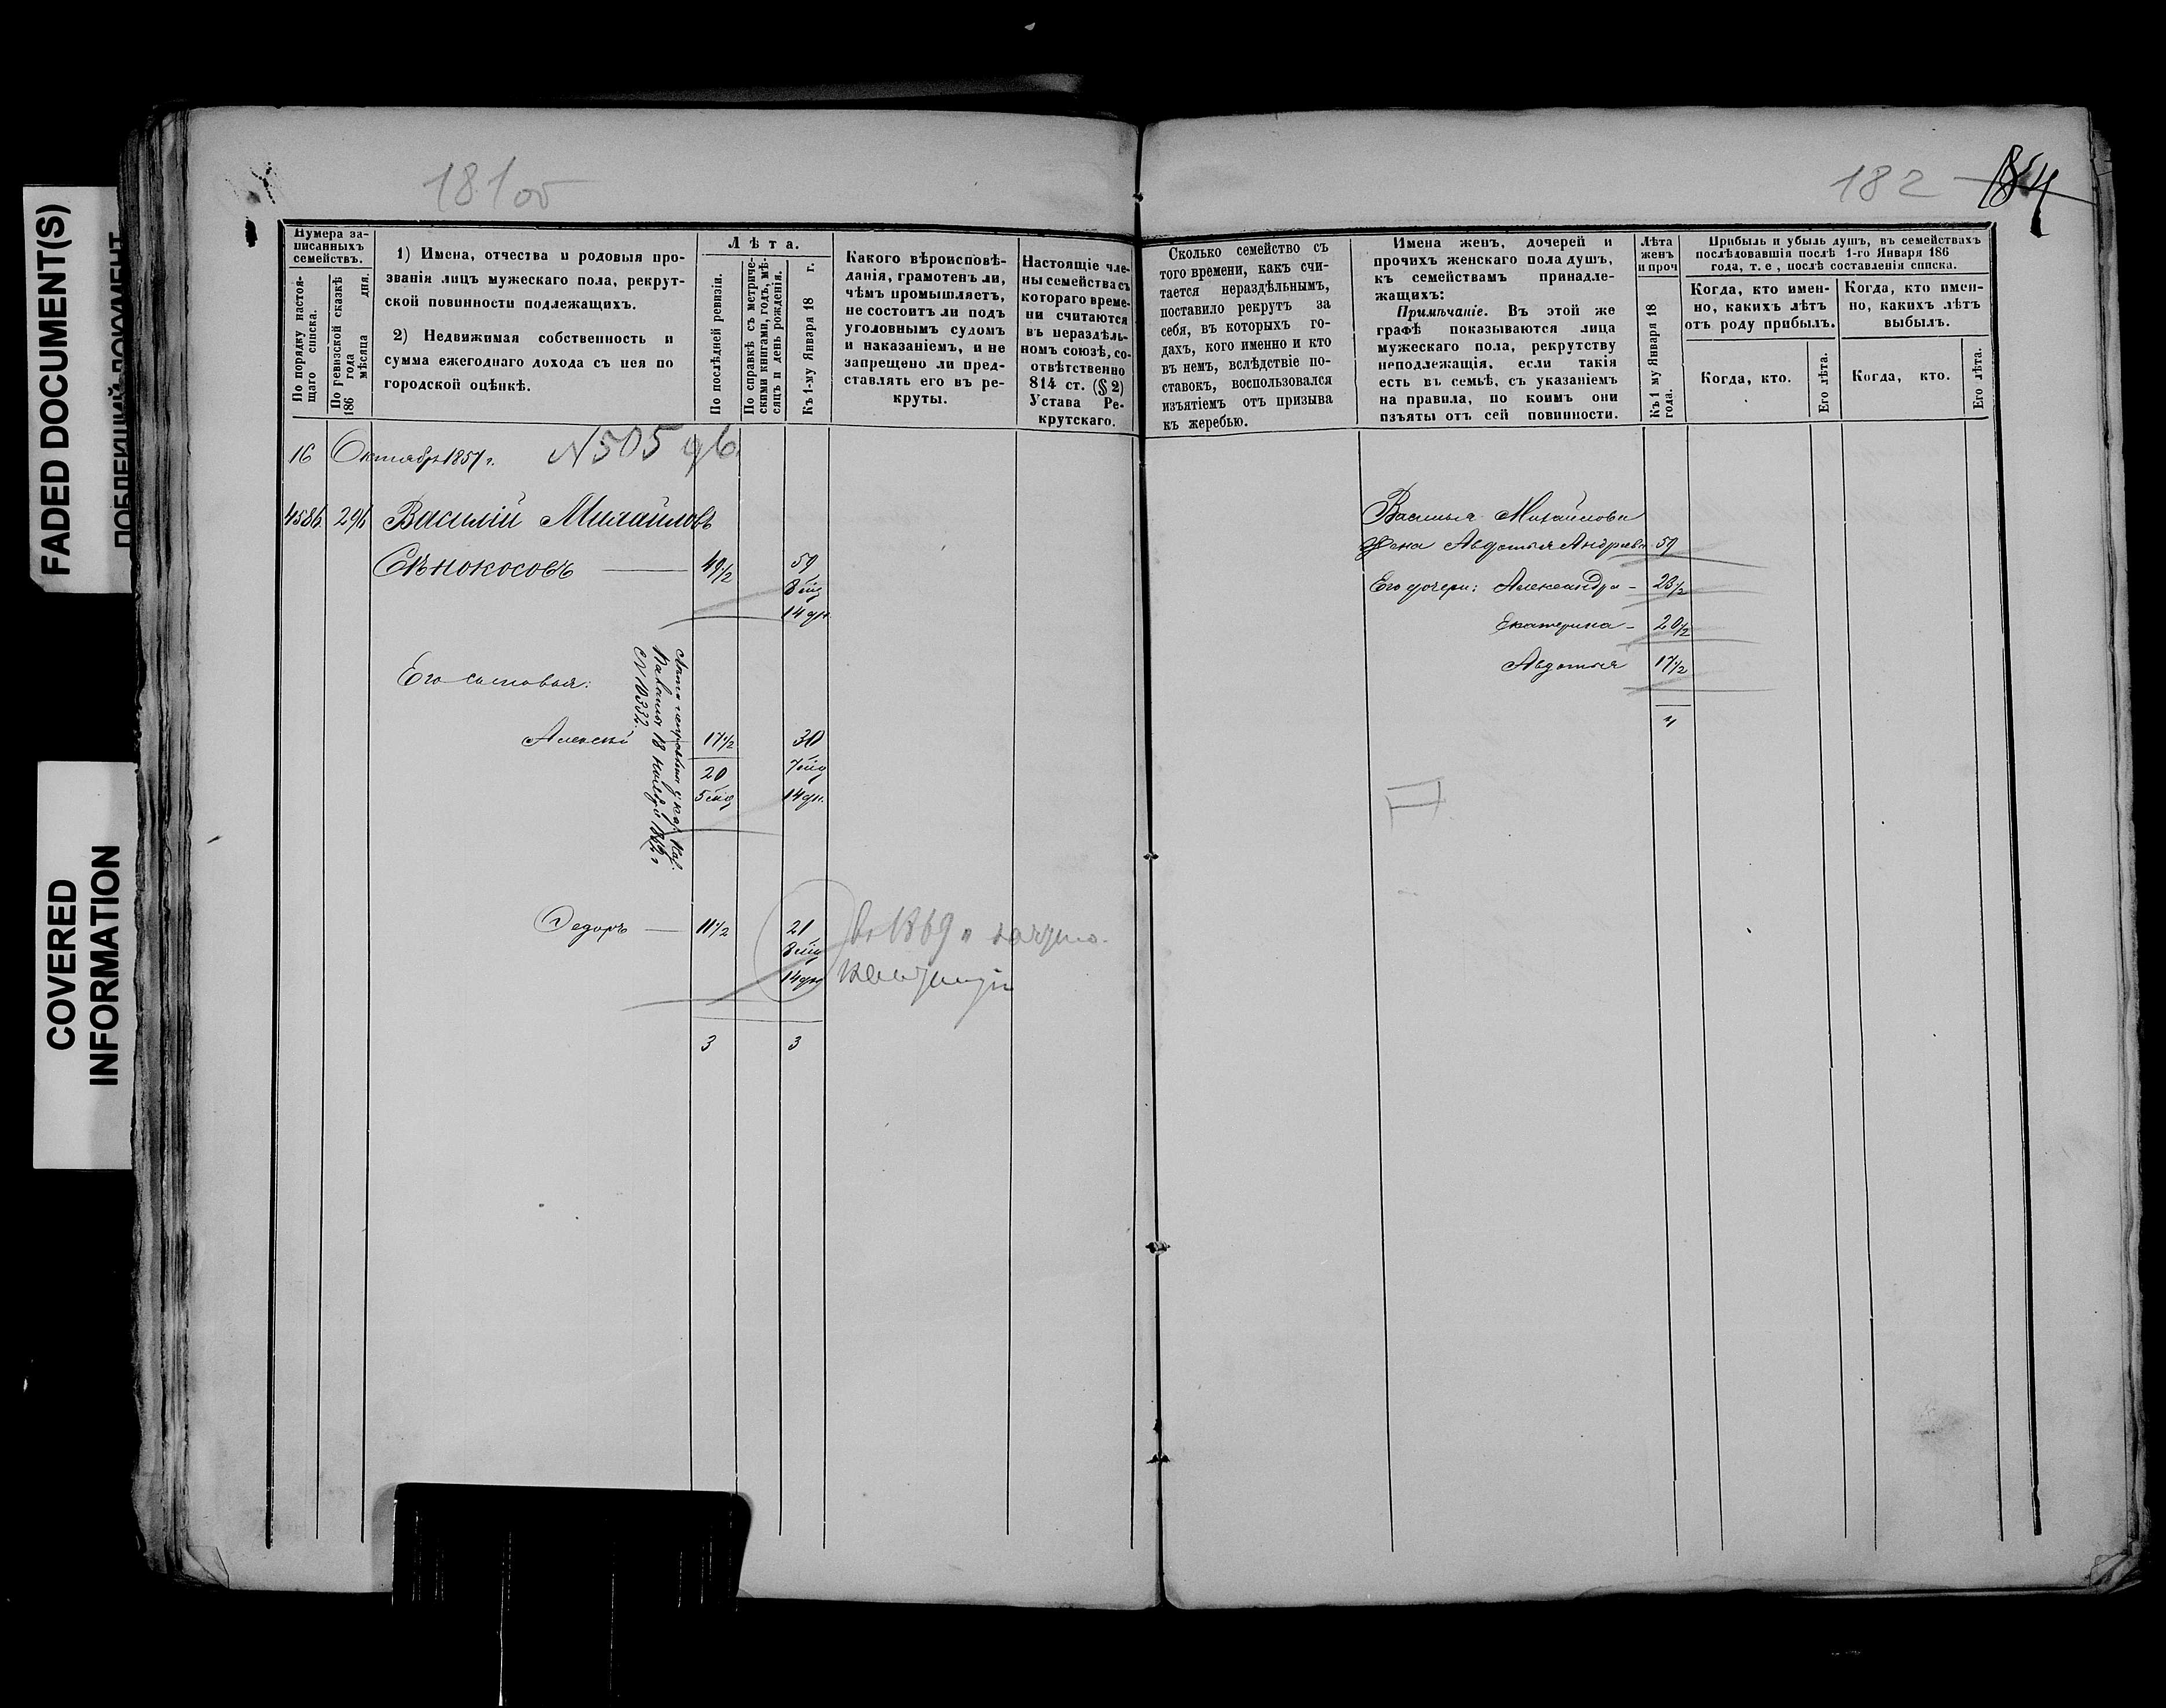 FADED DOCUMENT(S)
COVERED
INFORMATION
181об
Нумера за-
писанныхъ
семействъ.
По порядку настоя-
щаго списка.
По ревизской сказкѣ
186 года
мѣсяца дня.
1) Имена, отчества и родовыя про-
званія лицъ мужескаго пола, рекрут-
ской повинности подлежащихъ.
2) Недвижимая собственность и
сумма ежегоднаго дохода съ нея по
городской оцѣнкѣ.
Лѣта.
По послѣдней ревизіи.
По справкѣ съ метриче-
скими книгами, годъ, мѣ-
сяцъ и день рожденія.
Къ 1-му Января 18 г.
Какого вѣроисповѣ-
данія, грамотенъ ли,
чѣмъ промышляетъ,
не состоитъ ли подъ
уголовнымъ судомъ
и наказаніемъ, и не
запрещено ли пред-
ставлять его въ ре-
круты.
Настоящіе чле-
ны семейства съ
котораго време-
ни считаются
въ нераздѣль-
номъ союзѣ, со-
отвѣтственно
814 ст. (§ 2)
Устава Ре-
крутскаго.
16 Октября 1857 г.
N 505
4586 296 Василій Михайловъ
Сѣнокосовъ 49½ 59
8 мѣц
14 дн
Его сыновья:
Алексѣй 17½ 30
20 7 мѣц
5 мѣц 14 дн.
18 1862 г
N 10332.
Федоръ 11½ 21
8 мѣц
14 дн
въ 1869
3 3
182 184
Сколько семейство съ
того времени, какъ счи-
тается нераздѣльнымъ,
поставило рекрутъ за
себя, въ которыхъ го-
дахъ, кого именно и кто
въ немъ, вслѣдствіе по-
ставокъ, воспользовался
изъятіемъ отъ призыва
къ жеребью.
Имена женъ, дочерей и
прочихъ женскаго пола душъ,
къ семействамъ принадле-
жащихъ:
Примѣчаніе. Въ этой же
графѣ показываются лица
мужескаго пола, рекрутству
неподлежащія, если такія
есть въ семьѣ, съ указаніемъ
на правила, по коимъ они
изъяты отъ сей повинности.
Лѣта
женъ
и проч
Къ 1 му Января 18
года.
Прибыль и убыль душъ, въ семействахъ
послѣдовавшія послѣ 1-го Января 186
года, т. е, послѣ составленія списка.
Когда, кто имен-
но, какихъ лѣтъ
отъ роду прибылъ.
Когда, кто.
Его лѣта.
Когда, кто имен-
но, какихъ лѣтъ
выбылъ.
Когда, кто.
Его лѣта.
Василья Михайлова
Жена Авдотья Андреева 59
Его дочери: Александра - 23½
Екатерина - 20½
Авдотья 17½
4